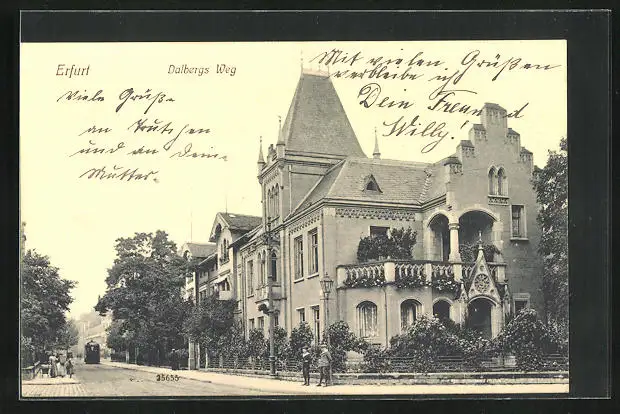 Erfurt
Dalbergs Weg
Mit vielen Grüßen
verbleibe ich
Dein Freund
Willy!
Viele Grüße
an Trutchen
und an Deine
Mutter.
25655